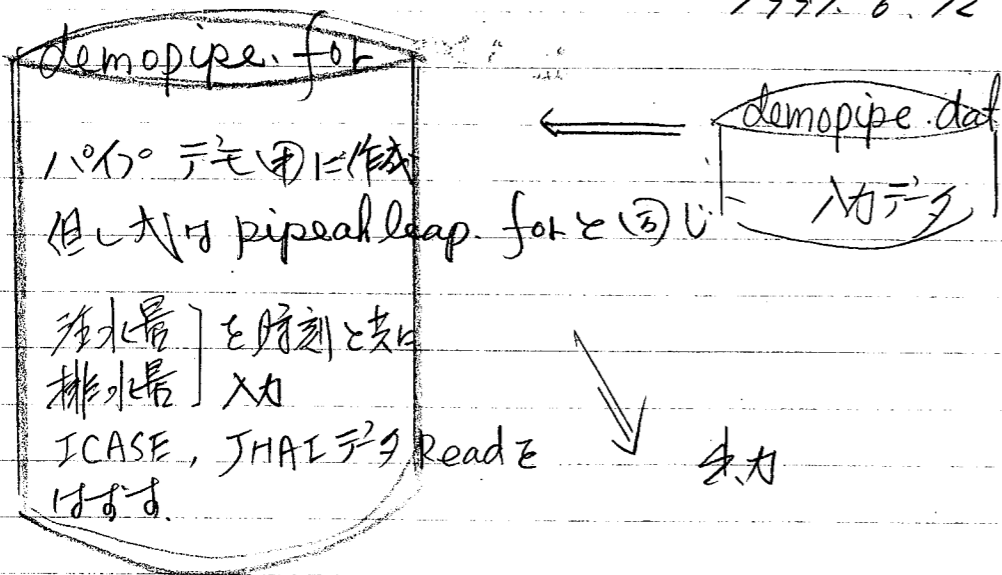 demopipe.for
パイプ デモ用に作成
但し大は pipeahleap.for と同じ
注水量
排水量
を時刻と共に
入力
ICASE, JHAI データ Readを
はずす.
demopipe.dat
入力データ
出力